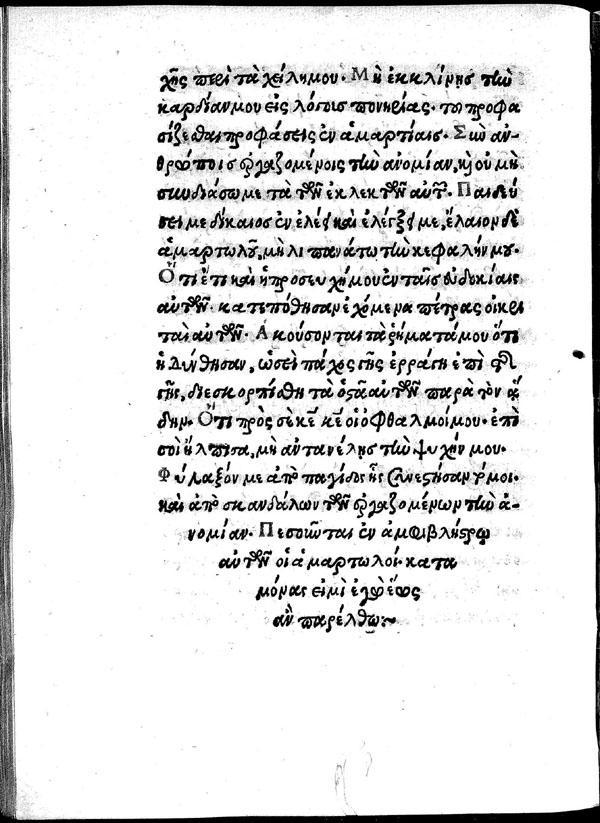 χῆς περὶ τὰ χείλη μου· Μὴ ἐκκλίνῃς τὴν
καρδίαν μου εἰς λόγοις πονηρίας· τοῦ προφα
σίζεσθαι προφάσεις ἐν ἁμαρτίαις· Σὺν ἀν-
θρώποις ἐργαζομένοις τὴν ἀνομίαν, καὶ οὐ μὴ
συνδιάσω με τὰ τῶν ἐκλεκτῶν αὐτῶν· Παιδεύ
σει με δίκαιος ἐν ἐλέει καὶ ἐλέγξει με, ἔλαιον δὲ
ἁμαρτωλοῦ, μὴ λιπανάτω τὴν κεφαλήν μου·
Ὅτι ἔτι καὶ ἡ προσευχή μου ἐν ταῖς εὐδοκίαις
αὐτῶν· κατεπόθησαν ἐχόμενα πέτρας οἱ κρι
ταὶ αὐτῶν· Ἀκούσονται τὰ ῥήματά μου ὅτι
ἡδύνθησαν, ὡσεὶ πάχος γῆς ἐρράγη ἐπὶ τῆς
γῆς, διεσκορπίσθη τὰ ὀστᾶ αὐτῶν παρὰ τὸν ᾅ
δην· Ὅτι πρὸς σὲ κε κε οἱ ὀφθαλμοί μου· ἐπὶ
σοὶ ἤλπισα, μὴ ἀντανέλῃς τὴν ψυχήν μου·
Φύλαξόν με ἀπὸ παγίδος ἧς συνεστήσαντό μοι·
καὶ ἀπὸ σκανδάλων τῶν ἐργαζομένων τὴν ἀ-
νομίαν· Πεσοῦνται ἐν ἀμφιβλήστρῳ
αὐτῶν οἱ ἁμαρτωλοί· κατα
μόνας εἰμὶ ἐγὼ ἕως
ἂν παρέλθω:~